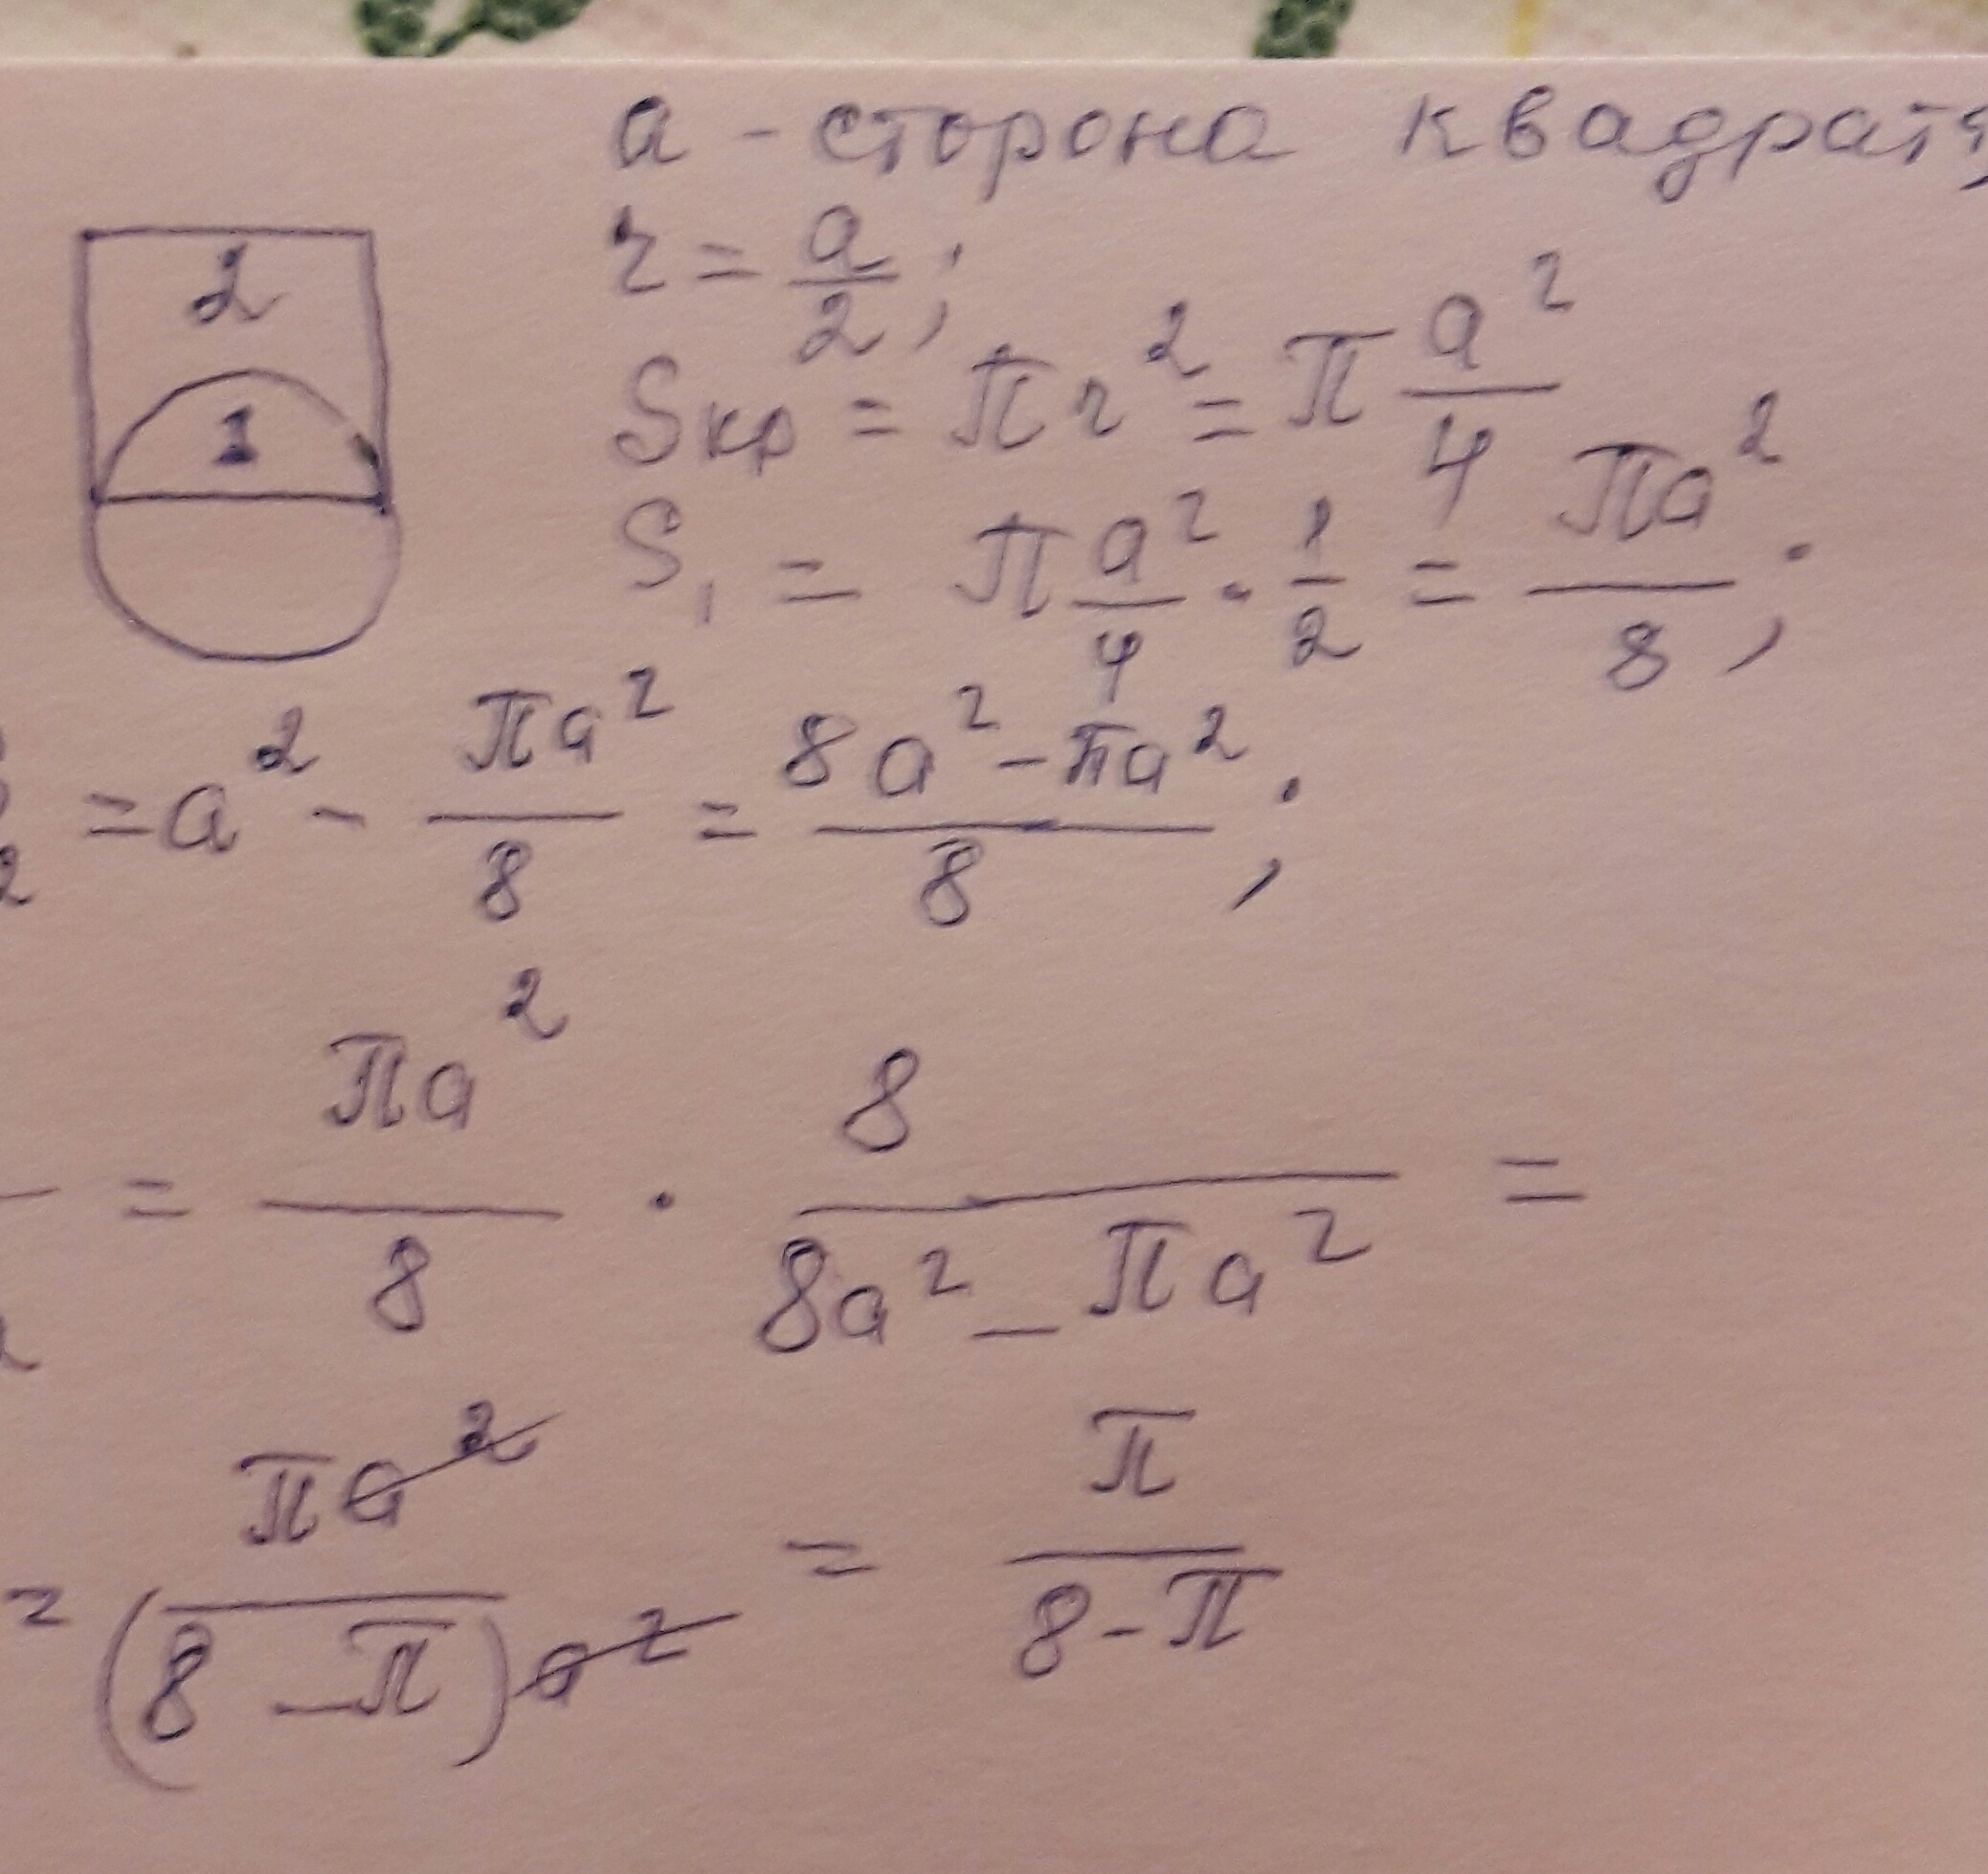 a - сторона квадрата
2
r = a/2;
Sкр = πr² = π a²/4
1
S₁ = π a²/4 · 1/2 = πa²/8;
₂ = a² - πa²/8 = (8a² - πa²)/8;
= πa²/8 · 8/(8a² - πa²) =
= πa²/((8 - π)a²) = π/(8 - π)